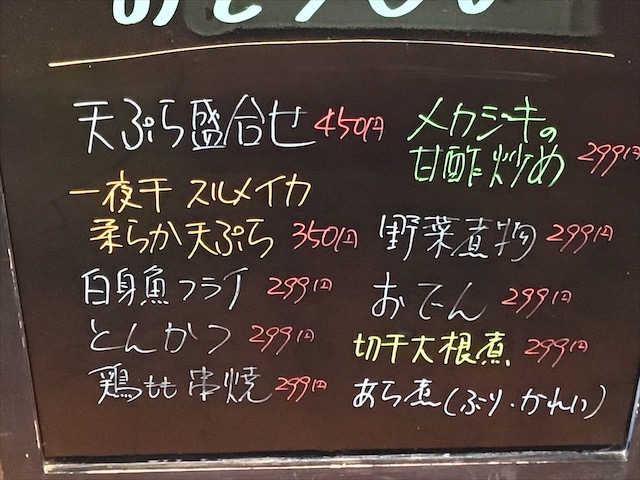 天ぷら盛合せ 450円
一夜干 スルメイカ
柔らか天ぷら 350円
白身魚フライ 299円
とんかつ 299円
鶏もも串焼 299円
メカジキの
甘酢炒め 299円
野菜煮物 299円
おでん 299円
切干大根煮 299円
あら煮(ぶり・かれい)